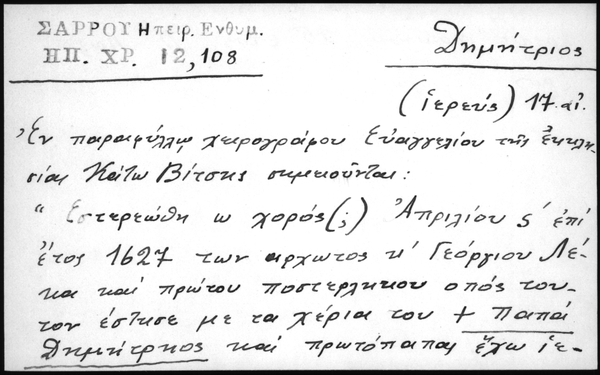 ΣΑΡΡΟΥ Ηπειρ. Ενθυμ.
ΗΠ. ΧΡ. 12,108
Δημήτριος
(ἱερεύς) 17. αἰ.
Ἐν παραφύλλῳ χειρογράφου Εὐαγγελίου τῆς ἐκκλη-
σίας Κάτω Βίτσης σημειοῦνται:
"Εστερεώθη ω χορός(;) Ἀπριλίου ς' ἐπί
ἔτος 1627 των αρχωτος κ' Γεόργιου Λέ-
κα καί πρώτου ποστερληκου οπός του-
τον έστισε με τα χέρια του + Παπά
Δημήτρηος καί πρωτόπαπας ἔχω ἱε-